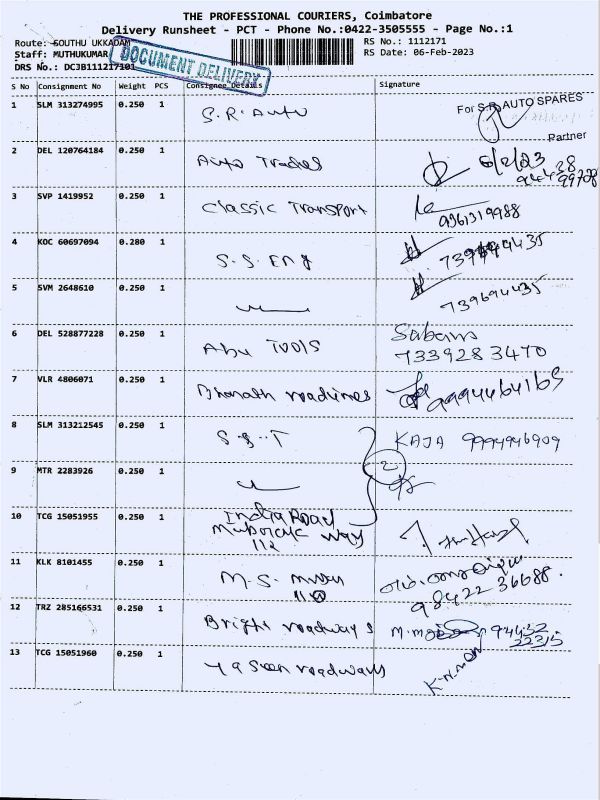 THE PROFESSIONAL COURIERS, Coimbatore
Delivery Runsheet - PCT - Phone No.:0422-3505555 - Page No.:1
Route: SOUTHU UKKADAM
RS No.: 1112171
Staff: MUTHUKUMAR
RS Date: 06-Feb-2023
DRS No.: DCJB111217101
DOCUMENT DELIVERY
S No Consignment No Weight PCS Consignee Details Signature
1 SLM 313274995 0.250 1 S.R. Auto
For S.R. AUTO SPARES
Partner
2 DEL 120764184 0.250 1 Auto Trades 6/2/23
94438
99728
3 SVP 1419952 0.250 1 Classic Transport
9361319988
4 KOC 60697094 0.280 1 S.S. Eng
5 SVM 2648610 0.250 1
739694435
6 DEL 528877228 0.250 1 Abu Tools Sabana
7339283470
7 VLR 4806071 0.250 1 Bharath roadlines 9994464165
8 SLM 313212545 0.250 1 S.S.T KAJA 9994946909
9 MTR 2283926 0.250 1 2
10 TCG 15051955 0.250 1 India Road
way
112
11 KLK 8101455 0.250 1 M.S.
98422 36688.
12 TRZ 285166531 0.250 1 Bright roadways 94432
22315
13 TCG 15051960 0.250 1 roadways